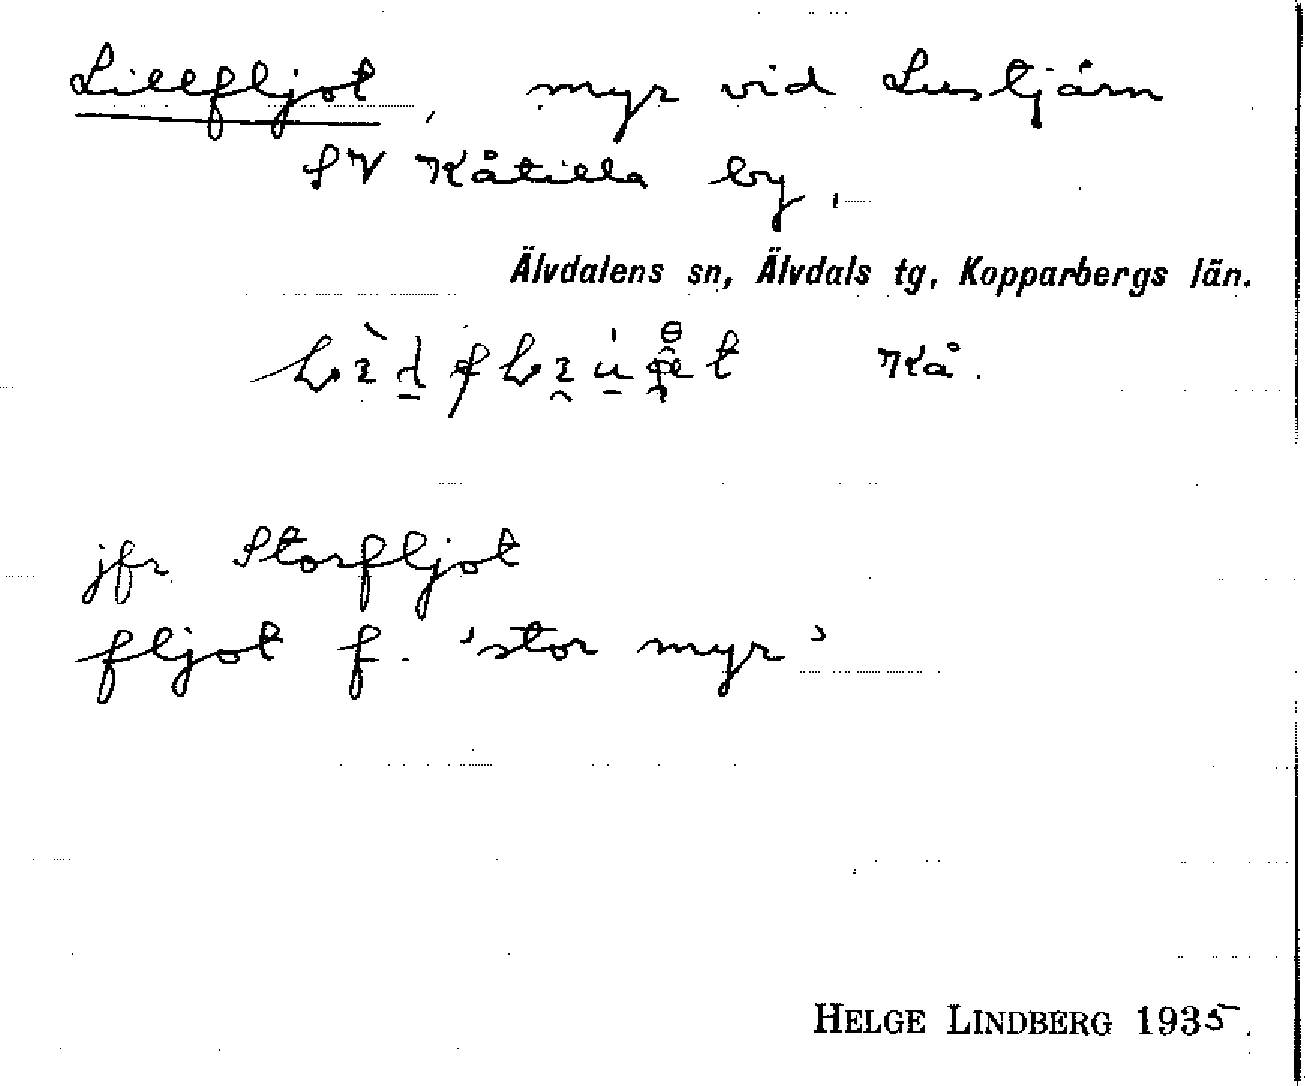 Lillfljot, myr vid Lustjärn
SV Kåtilla by,
Älvdalens sn, Älvdals tg, Kopparbergs län.
Kå.
jfr Storfljot
fljot f. 'stor myr'
HELGE LINDBERG 1935.